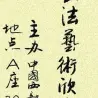 法藝術欣
主办 中国西
地点 A座